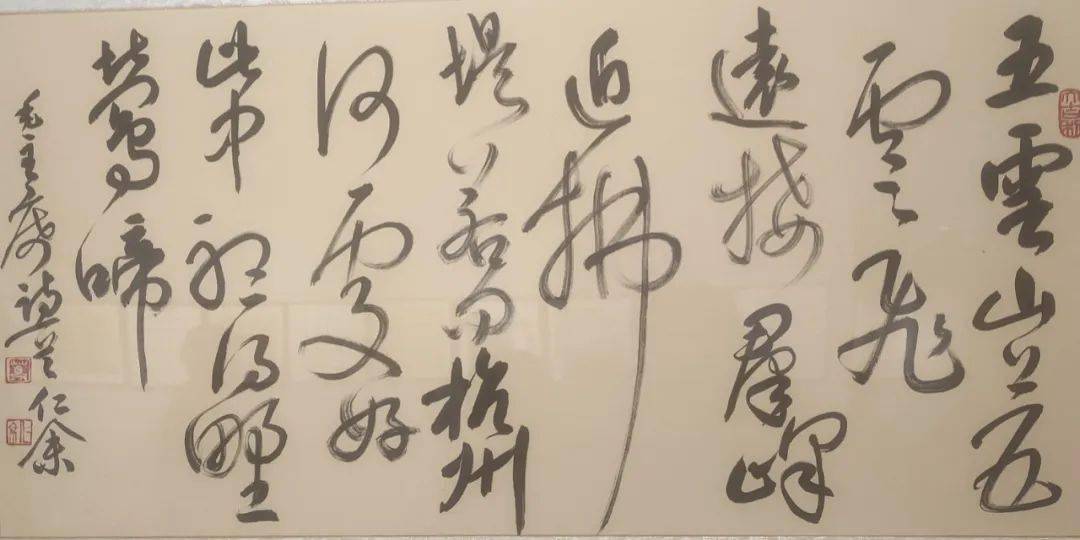 五雲山上五
雲飛
遠接羣峰
近拂
堤若問杭州
何處好
此中聽得野
鶯啼
毛主席詩 仁余